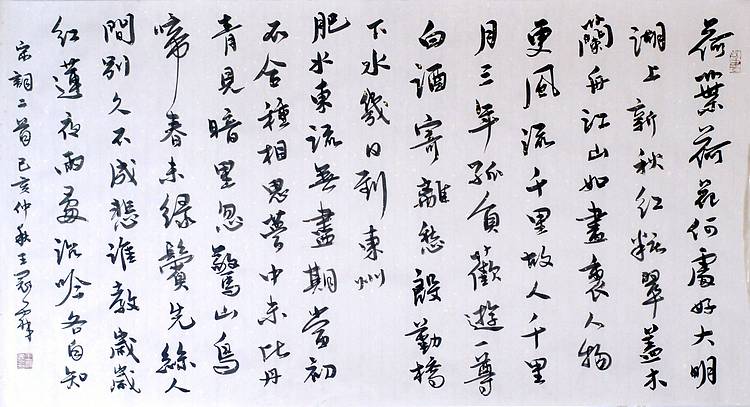 荷葉荷花何處好大明
湖上新秋紅粧翠蓋木
蘭舟江山如畫裏人物
更風流千里故人千里
月三年孤負歡遊一尊
白酒寄離愁殷勤橋
下水幾日到東州
肥水東流無盡期當初
不合種相思夢中未比丹
青見暗里忽驚山鳥
啼春未綠鬢先絲人
間別久不成悲誰教歲歲
紅蓮夜兩處沉吟各自知
宋詞二首己亥仲秋王